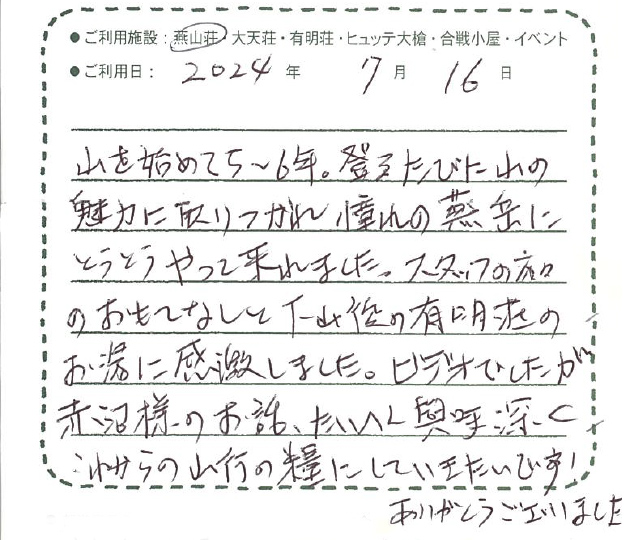 ●ご利用施設：燕山荘・大天荘・有明荘・ヒュッテ大槍・合戦小屋・イベント
●ご利用日：2024年 7月 16日
山を始めて5～6年。登るたびに山の
魅力に取りつかれ 憧れの燕岳に
とうとうやって来れました。スタッフの方々
のおもてなしと下山後の有明荘の
お湯に感激しました。ビデオでしたが
赤沼様のお話、たいへん興味深く
これからの山行の糧にしていきたいです!
ありがとうございました